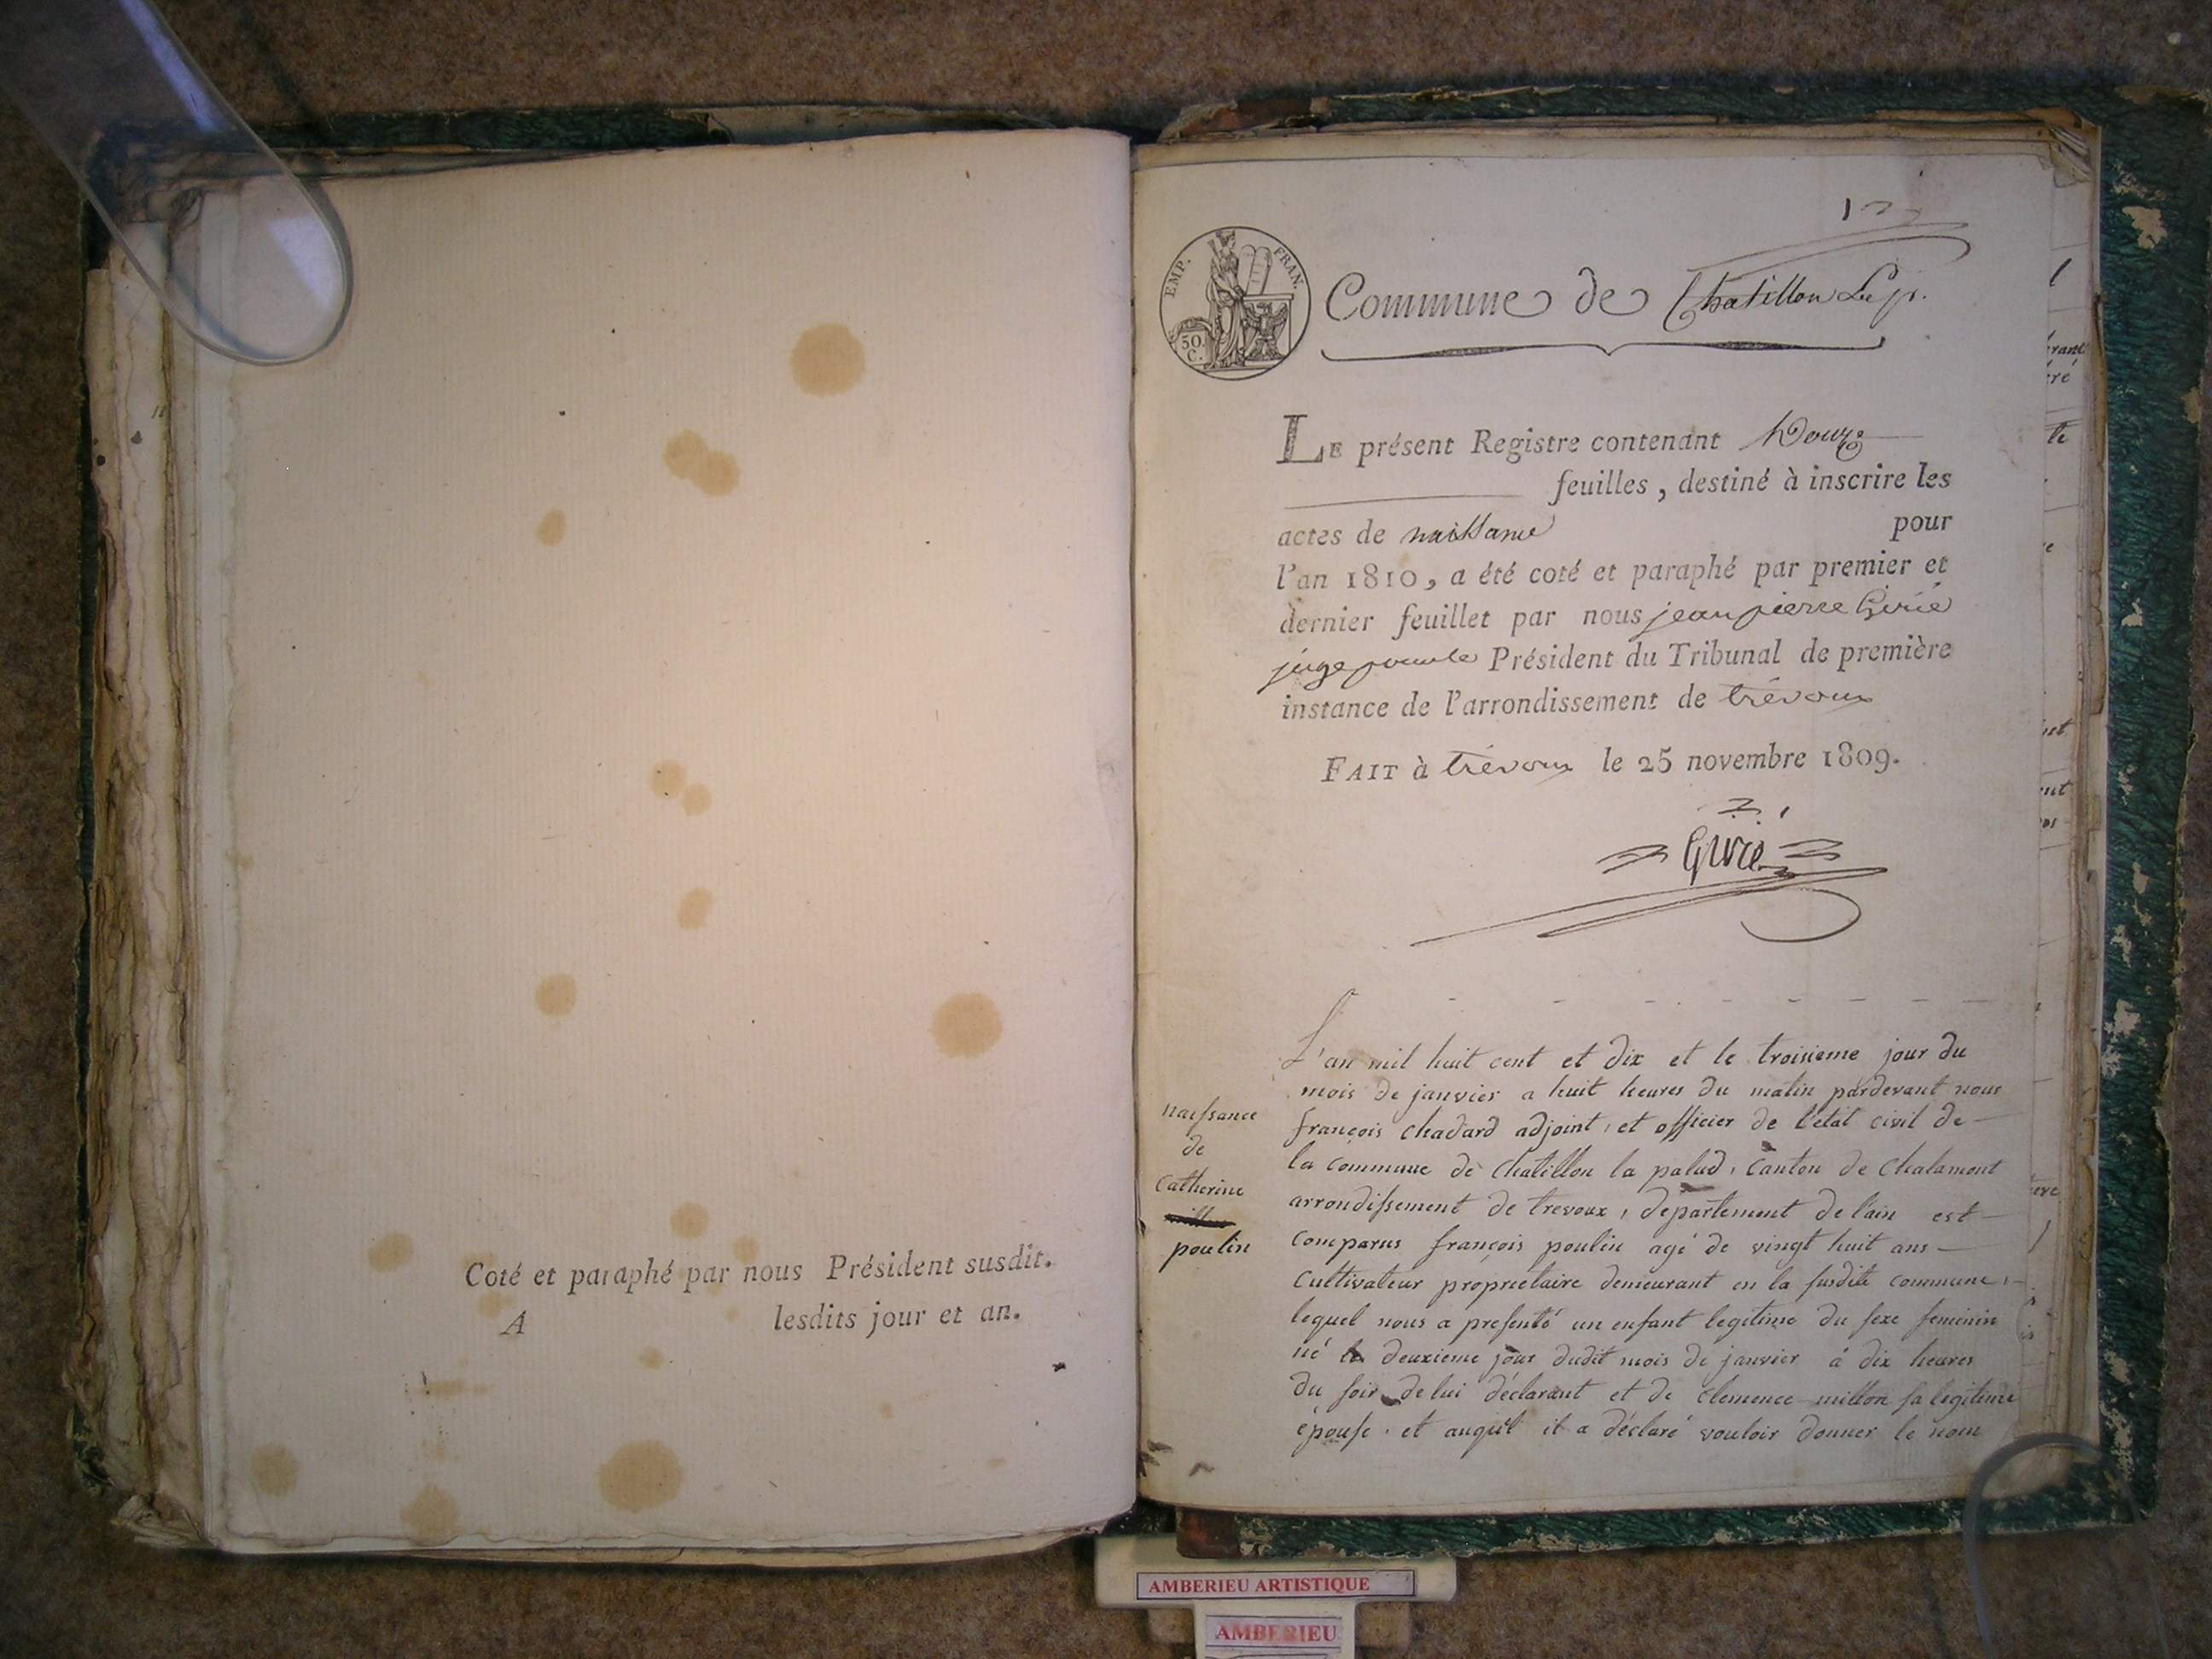 Coté et paraphé par nous Président susdit.
A lesdits jour et an.
EMP. FRAN.
50.
C.
Commune de Chatillon La p.
LE présent Registre contenant Douze
feuilles, destiné à inscrire les
actes de naissance pour
l'an 1810, a été coté et paraphé par premier et
dernier feuillet par nous jean pierre Girié
juge pour le Président du Tribunal de première
instance de l'arrondissement de trévoux
FAIT à trévoux le 25 novembre 1809.
Girié
naissance
de
Catherine
poulin
L'an mil huit cent et dix et le troisieme jour du
mois de janvier a huit heures du matin pardevant nous
françois chadard adjoint, et officier de l'état civil de
la commune de chatillon la palud, canton de chalamont
arrondissement de trevoux, département de l'ain est
comparus françois poulin agé de vingt huit ans
cultivateur propriétaire demeurant en la susdite commune,
lequel nous a présenté un enfant legitime du sexe feminin
né le deuxieme jour dudit mois de janvier á dix heures
du soir de lui déclarant et de clemence millon sa legitime
épouse. et auquel il a déclaré vouloir donner le nom
AMBERIEU ARTISTIQUE
AMBERIEU